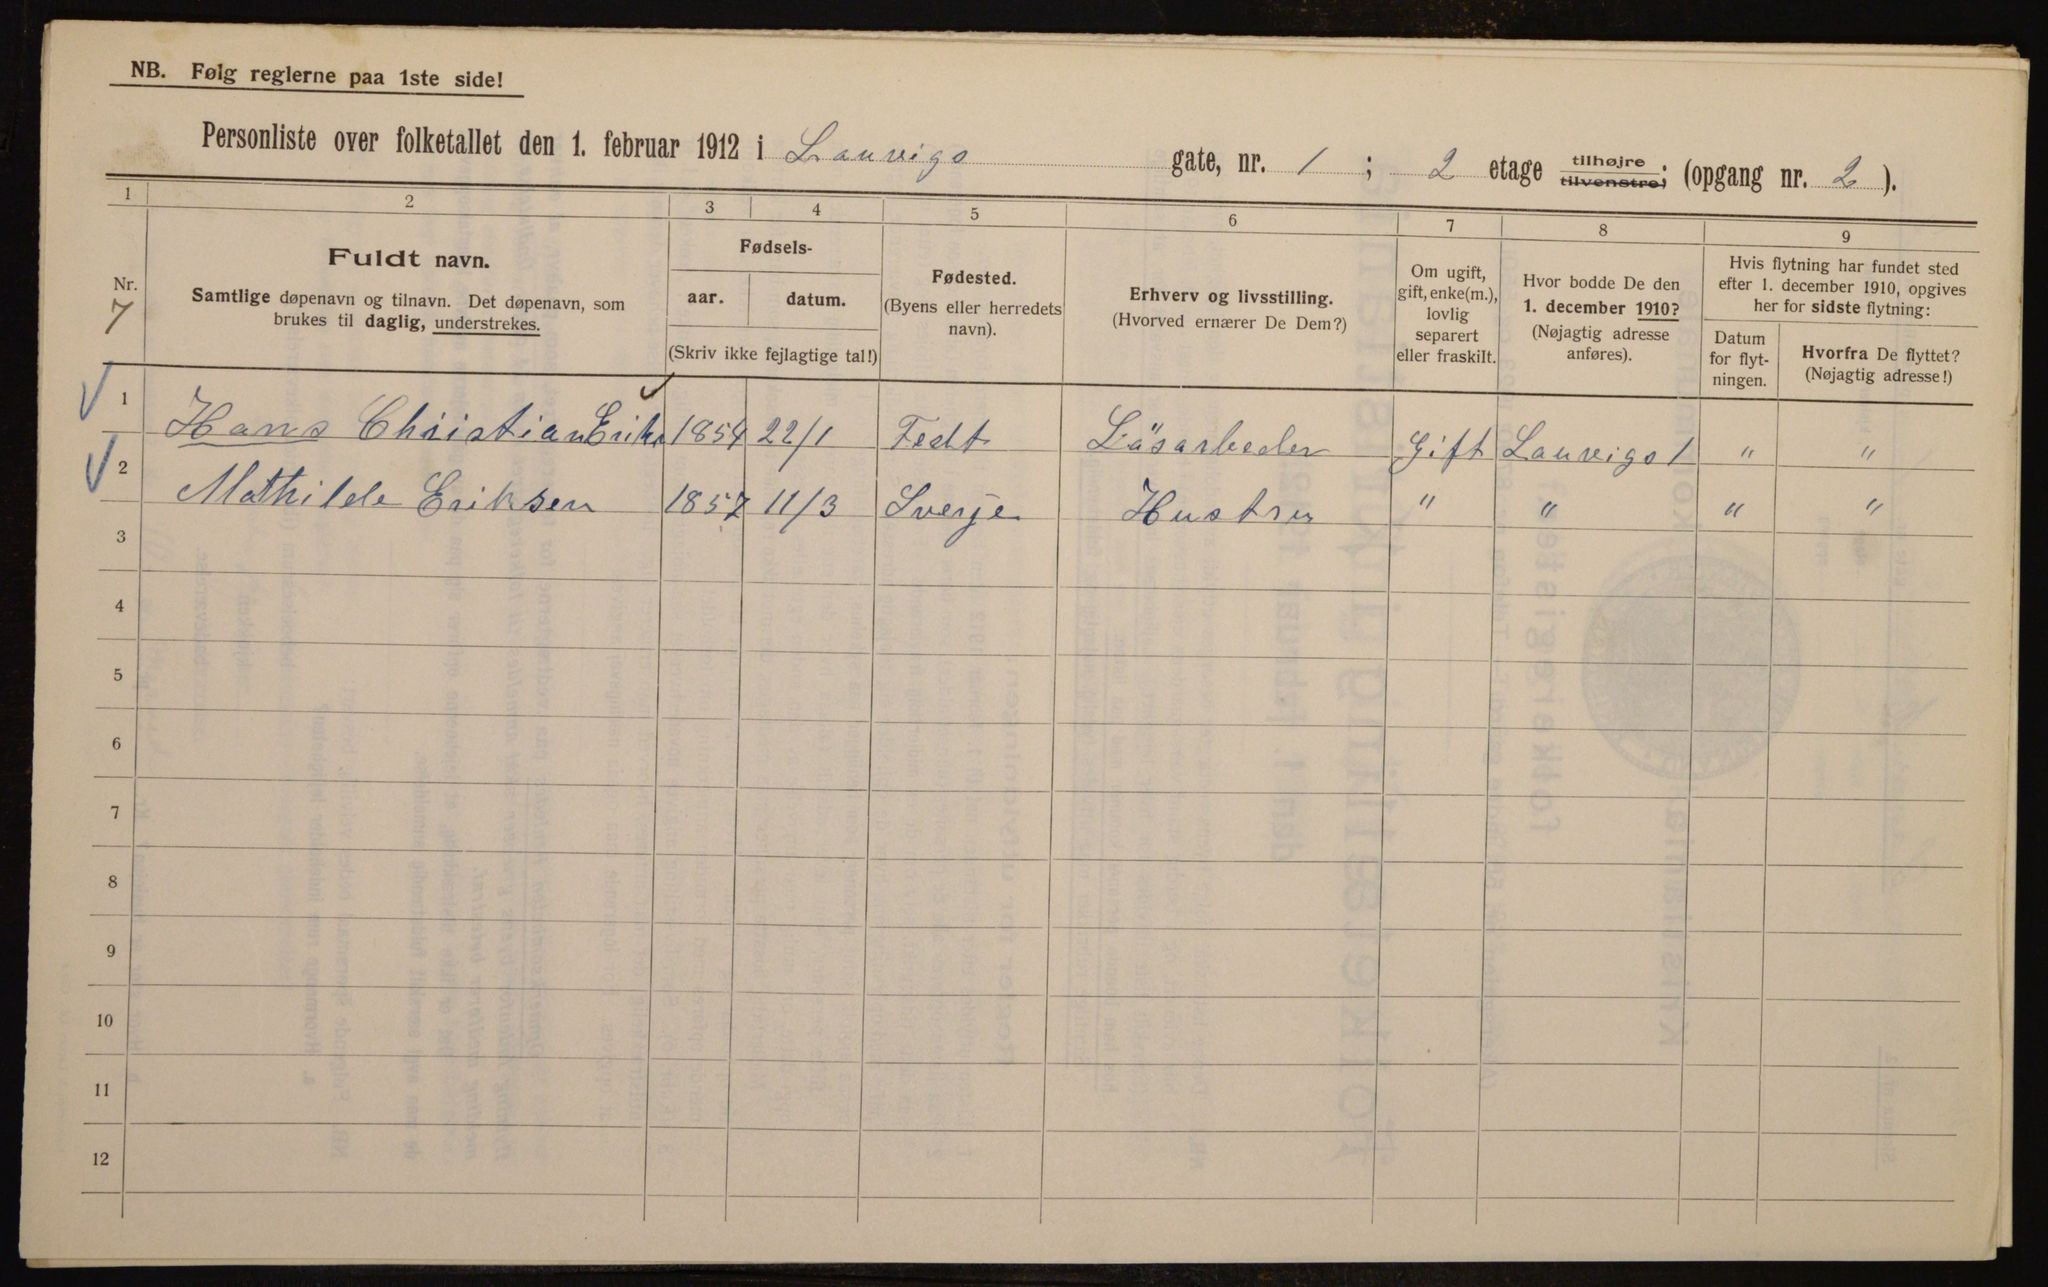 NB. Følg reglerne paa 1ste side!
Personliste over folketallet den 1. februar 1912 i Lauvigs gate, nr. 1 ; 2 etage tilhøjre tilvenstre; (opgang nr. 2 ).
1 2 3 4 5 6 7 8 9
Nr.
7
Fuldt navn.
Samtlige døpenavn og tilnavn. Det døpenavn, som
brukes til daglig, understrekes.
Fødsels-
aar. datum.
(Skriv ikke fejlagtige tal!)
Fødested.
(Byens eller herredets
navn).
Erhverv og livsstilling.
(Hvorved ernærer De Dem?)
Om ugift,
gift, enke(m.),
lovlig
separert
eller fraskilt.
Hvor bodde De den
1. december 1910?
(Nøjagtig adresse
anføres).
Hvis flytning har fundet sted
efter 1. december 1910, opgives
her for sidste flytning:
Datum
for flyt-
ningen.
Hvorfra De flyttet?
(Nøjagtig adresse!)
1 Hans Christian 1854 22/1 Fedt Løsarbeder Gift Lauvigs 1 " "
2 Mathilde Eriksen 1857 11/3 Sverje Hustru " " " "
3
4
5
6
7
8
9
10
11
12